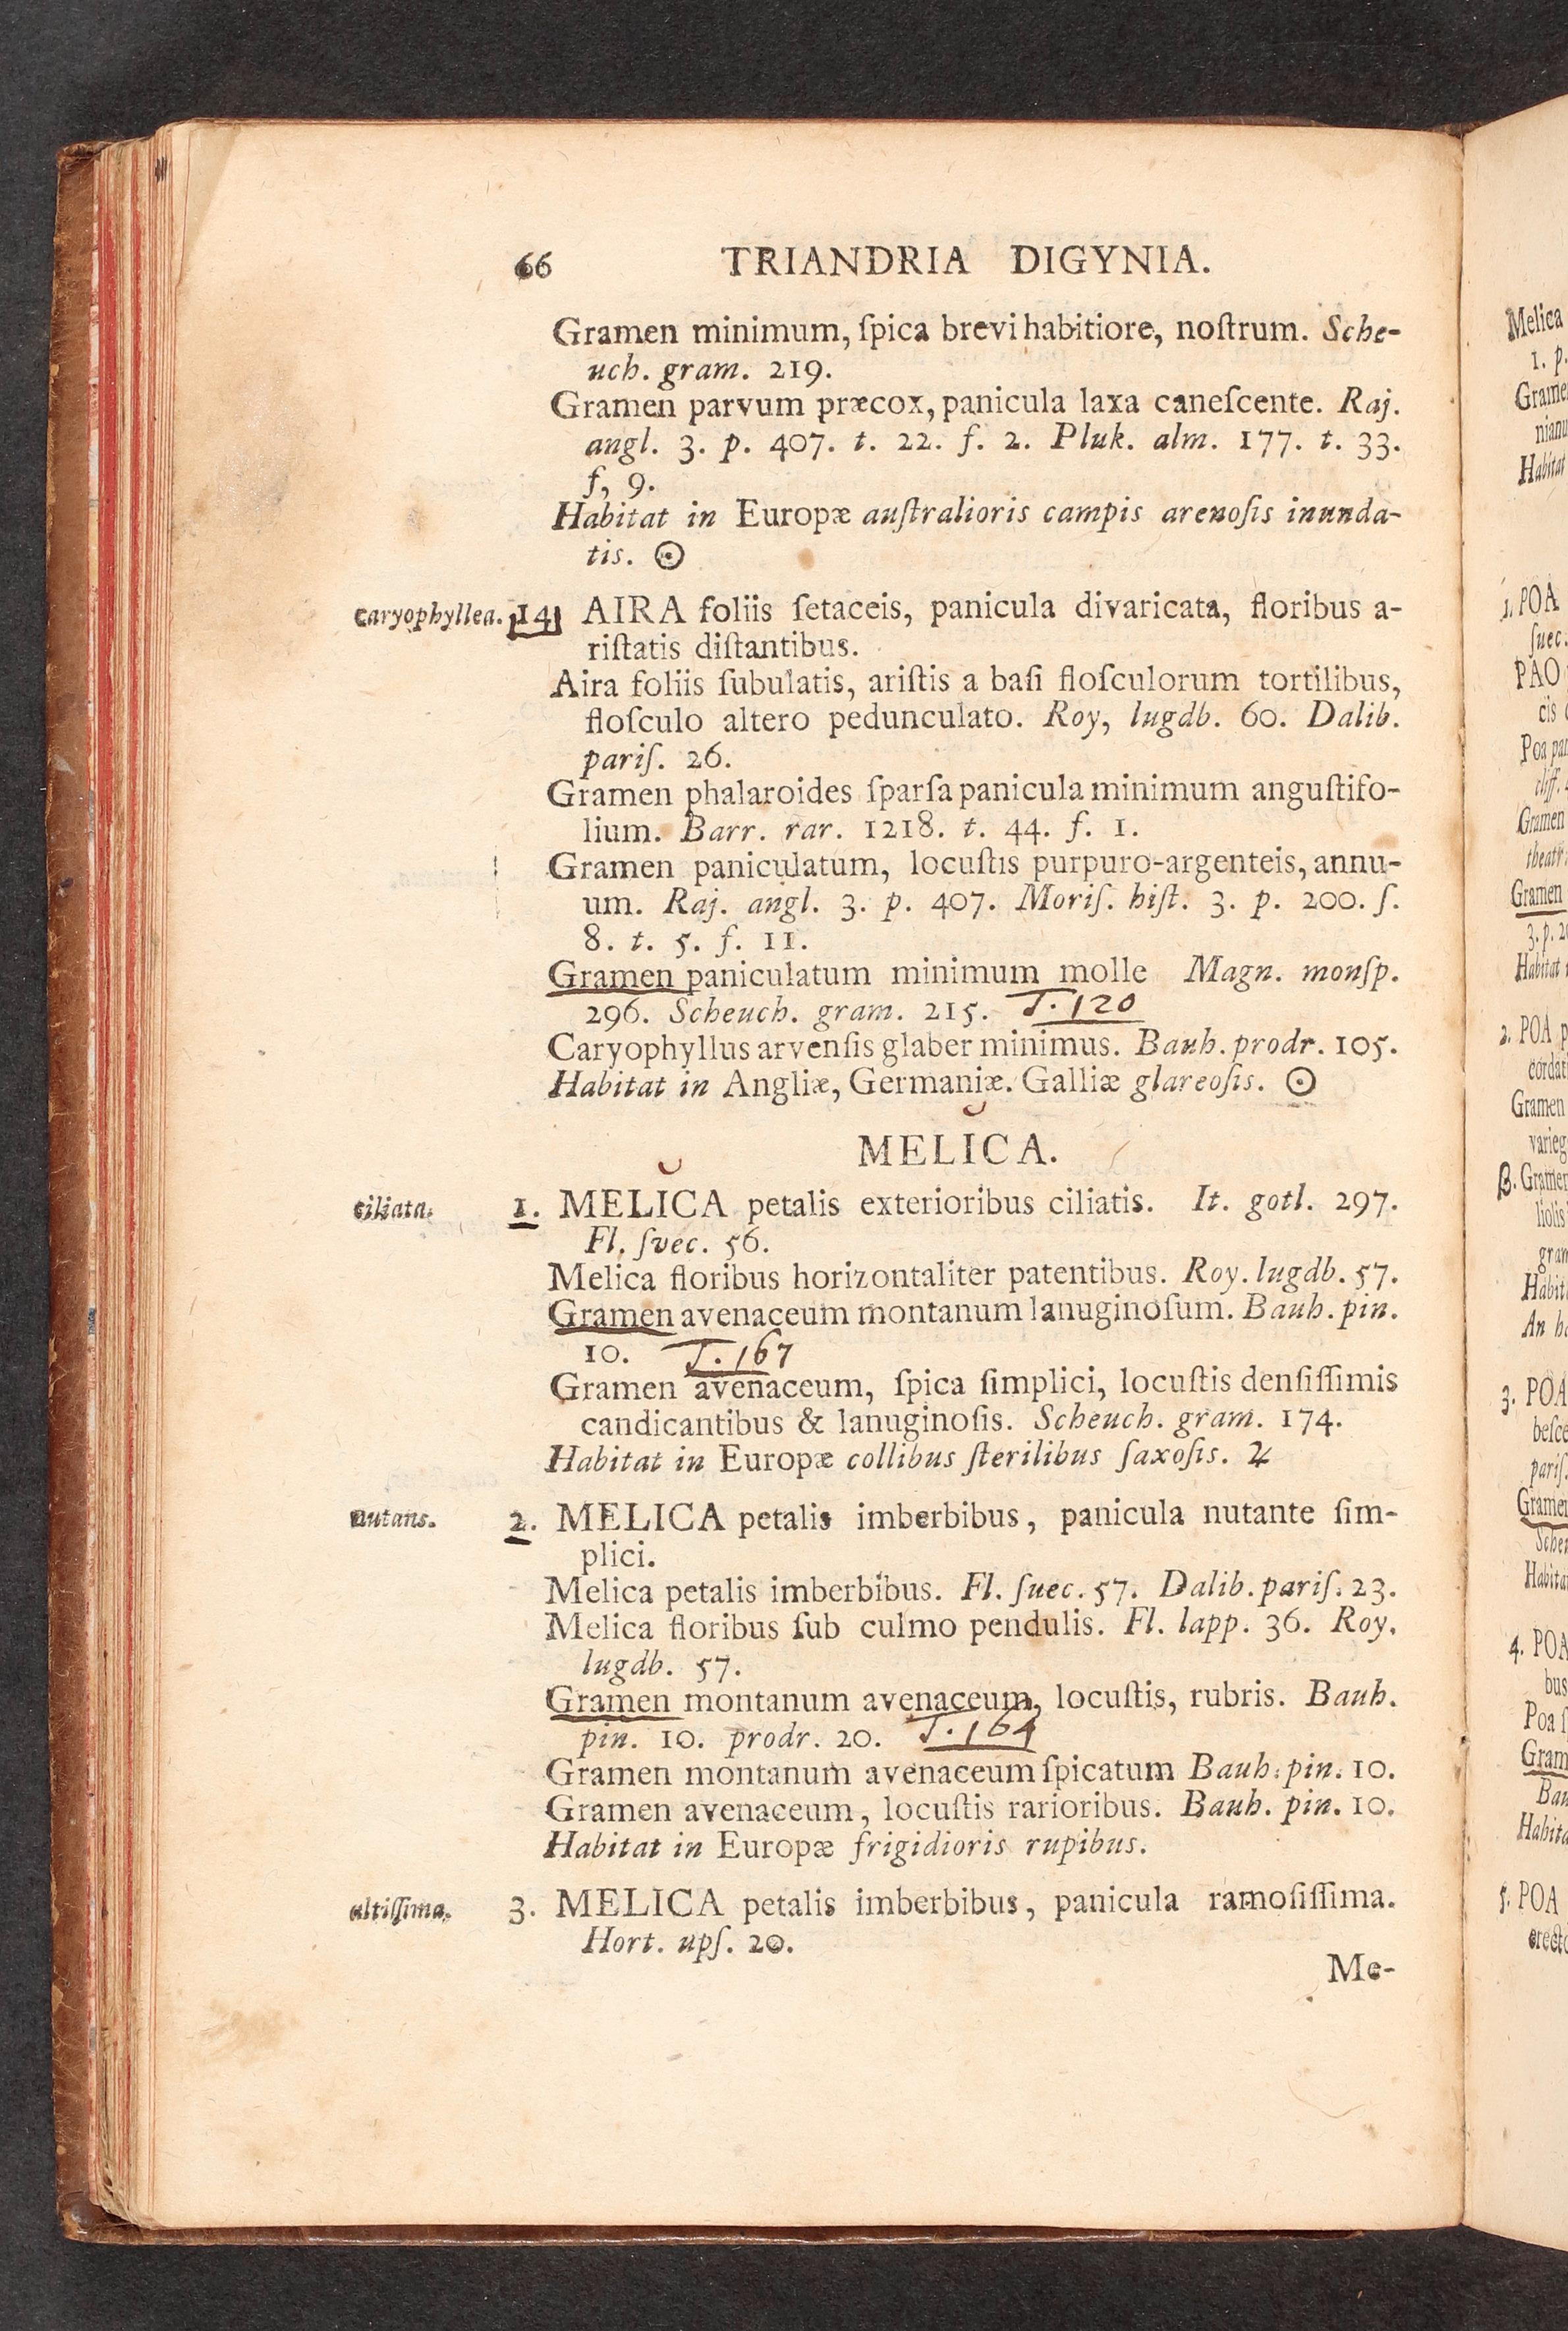 66 TRIANDRIA DIGYNIA.
Gramen minimum, ſpica brevi habitiore, noſtrum. Sche-
uch. gram. 219.
Gramen parvum præcox, panicula laxa caneſcente. Raj.
angl. 3. p. 407. t. 22. f. 2. Pluk. alm. 177. t. 33.
f, 9.
Habitat in Europæ auſtralioris campis arenoſis inunda-
tis. ☉
caryophyllea. 14 AIRA foliis ſetaceis, panicula divaricata, floribus a-
riſtatis diſtantibus.
Aira foliis ſubulatis, ariſtis a baſi floſculorum tortilibus,
floſculo altero pedunculato. Roy, lugdb. 60. Dalib.
pariſ. 26.
Gramen phalaroides ſparſa panicula minimum anguſtifo-
lium. Barr. rar. 1218. t. 44. f. 1.
Gramen paniculatum, locuſtis purpuro-argenteis, annu-
um. Raj. angl. 3. p. 407. Moriſ. hiſt. 3. p. 200. ſ.
8. t. 5. f. 11.
Gramen paniculatum minimum molle Magn. monſp.
296. Scheuch. gram. 215. T. 120
Caryophyllus arvenſis glaber minimus. Bauh. prodr. 105.
Habitat in Angliæ, Germaniæ. Galliæ glareoſis. ☉
MELICA.
ciliata. 1. MELICA petalis exterioribus ciliatis. It. gotl. 297.
Fl. ſvec. 56.
Melica floribus horizontaliter patentibus. Roy. lugdb. 57.
Gramen avenaceum montanum lanuginoſum. Bauh. pin.
10. T. 167
Gramen avenaceum, ſpica ſimplici, locuſtis denſiſſimis
candicantibus & lanuginoſis. Scheuch. gram. 174.
Habitat in Europæ collibus ſterilibus ſaxoſis. ♃
nutans. 2. MELICA petalis imberbibus, panicula nutante ſim-
plici.
Melica petalis imberbibus. Fl. ſuec. 57. Dalib. pariſ. 23.
Melica floribus ſub culmo pendulis. Fl. lapp. 36. Roy.
lugdb. 57.
Gramen montanum avenaceum, locuſtis, rubris. Bauh.
pin. 10. prodr. 20. T. 164
Gramen montanum avenaceum ſpicatum Bauh. pin. 10.
Gramen avenaceum, locuſtis rarioribus. Bauh. pin. 10.
Habitat in Europæ frigidioris rupibus.
altiſſima. 3. MELICA petalis imberbibus, panicula ramoſiſſima.
Hort. upſ. 20.
Me-
Melica
1. p.
Habitat
1. POA
ſuec.
PAO
cis
Gramen
Gramen
Habitat
2. POA p
Gramen
varieg
β. Gramen
liolis
An
3. POA
4. POA
Poa
5. POA